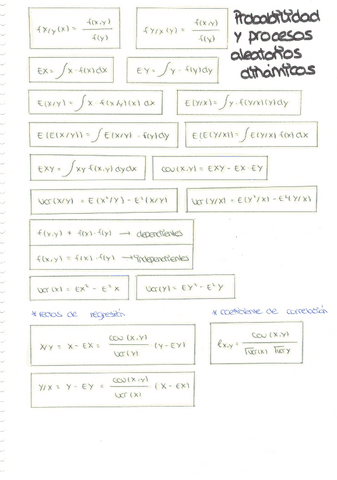 f x/y (x) = f(x,y) / f(y)
f y/x (y) = f(x,y) / f(x)
Probabilidad y procesos aleatorios dinámicos
EX = ∫x·f(x)dx
EY = ∫y·f(y)dy
E(X/Y) = ∫x·f(x/y)(x) dx
E(Y/X) = ∫y·f(y/x)(y)dy
E(E(X/Y)) = ∫E(X/Y)·f(y)dy
E(E(Y/X)) = ∫E(Y/X) f(x) dx
EXY = ∫xy f(x,y) dy dx
cov(X,Y) = EXY - EX·EY
Var(X/Y) = E(X²/Y) - E²(X/Y)
Var(Y/X) = E(Y²/X) - E²(Y/X)
f(x,y) ≠ f(x)·f(y) → dependientes
f(x,y) = f(x)·f(y) → independientes
Var(X) = EX² - E²X
Var(Y) = EY² - E²Y
* rectas de regresión
* coeficiente de correlación
X/Y = X - EX = cov(X,Y) / Var(Y) (Y - EY)
ρx,y = cov(X,Y) / √Var(X) √Var Y
Y/X = Y - EY = cov(X,Y) / Var(X) (X - EX)